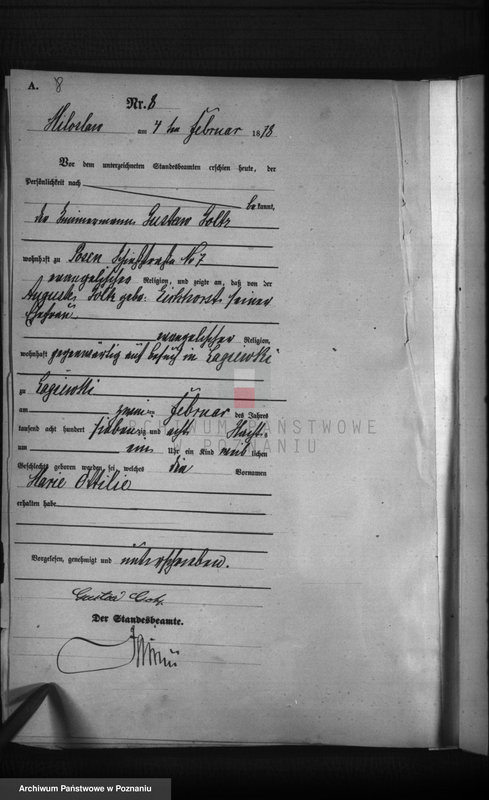 A. 8
Nr. 8
Miloslaw am 4 ten Februar 1878
Vor dem unterzeichneten Standesbeamten erschien heute, der
Persönlichkeit nach
bekannt,
der Zimmermann Gustav
wohnhaft zu Posen No 7
evangelischer Religion, und zeigte an, daß von der
geb: Eichhorst seiner
Ehefrau
evangelischer Religion,
wohnhaft gegenwärtig auf Besuch in Lagiewki
zu Lagiewki
am zwei ten Februar des Jahres
tausend acht hundert siebenzig und acht
um ein Uhr ein Kind weiblichen
Geschlechts geboren worden sei, welches die Vornamen
Marie Ottilie
erhalten habe
Vorgelesen, genehmigt und unterschrieben.
Gustav
Der Standesbeamte.
ARCHIWUM PAŃSTWOWE
W POZNANIU
Archiwum Państwowe w Poznaniu